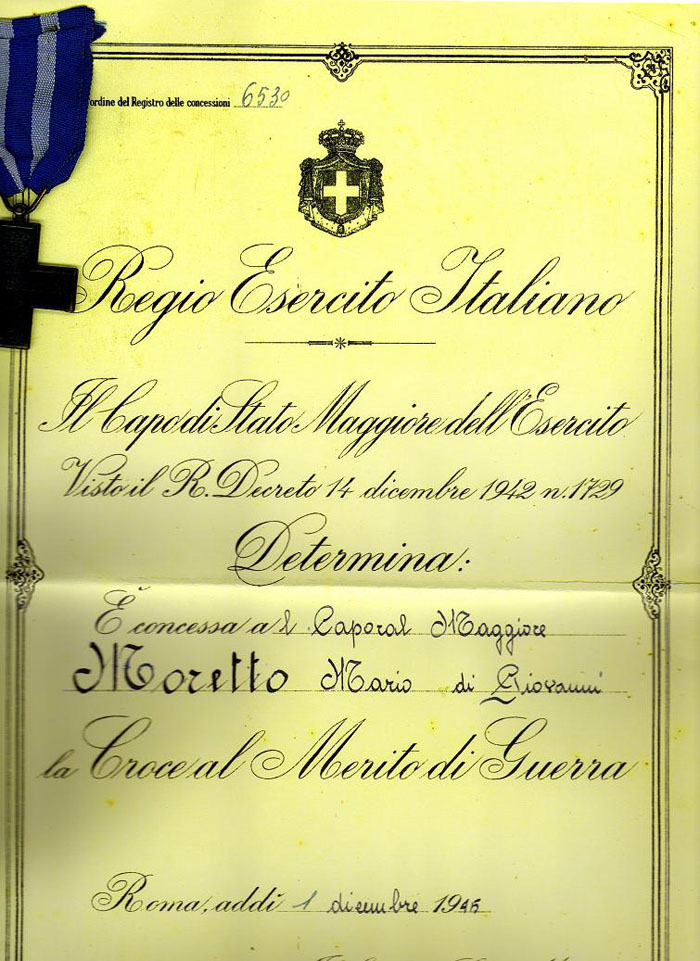 ordine del Registro delle concessioni 6530
Regio Esercito Italiano
Il Capo di Stato Maggiore dell'Esercito
Visto il R. Decreto 14 dicembre 1942 n. 1729
Determina:
È concessa al Caporal Maggiore
Moretto Mario di Giovanni
la Croce al Merito di Guerra
Roma, addì 1 dicembre